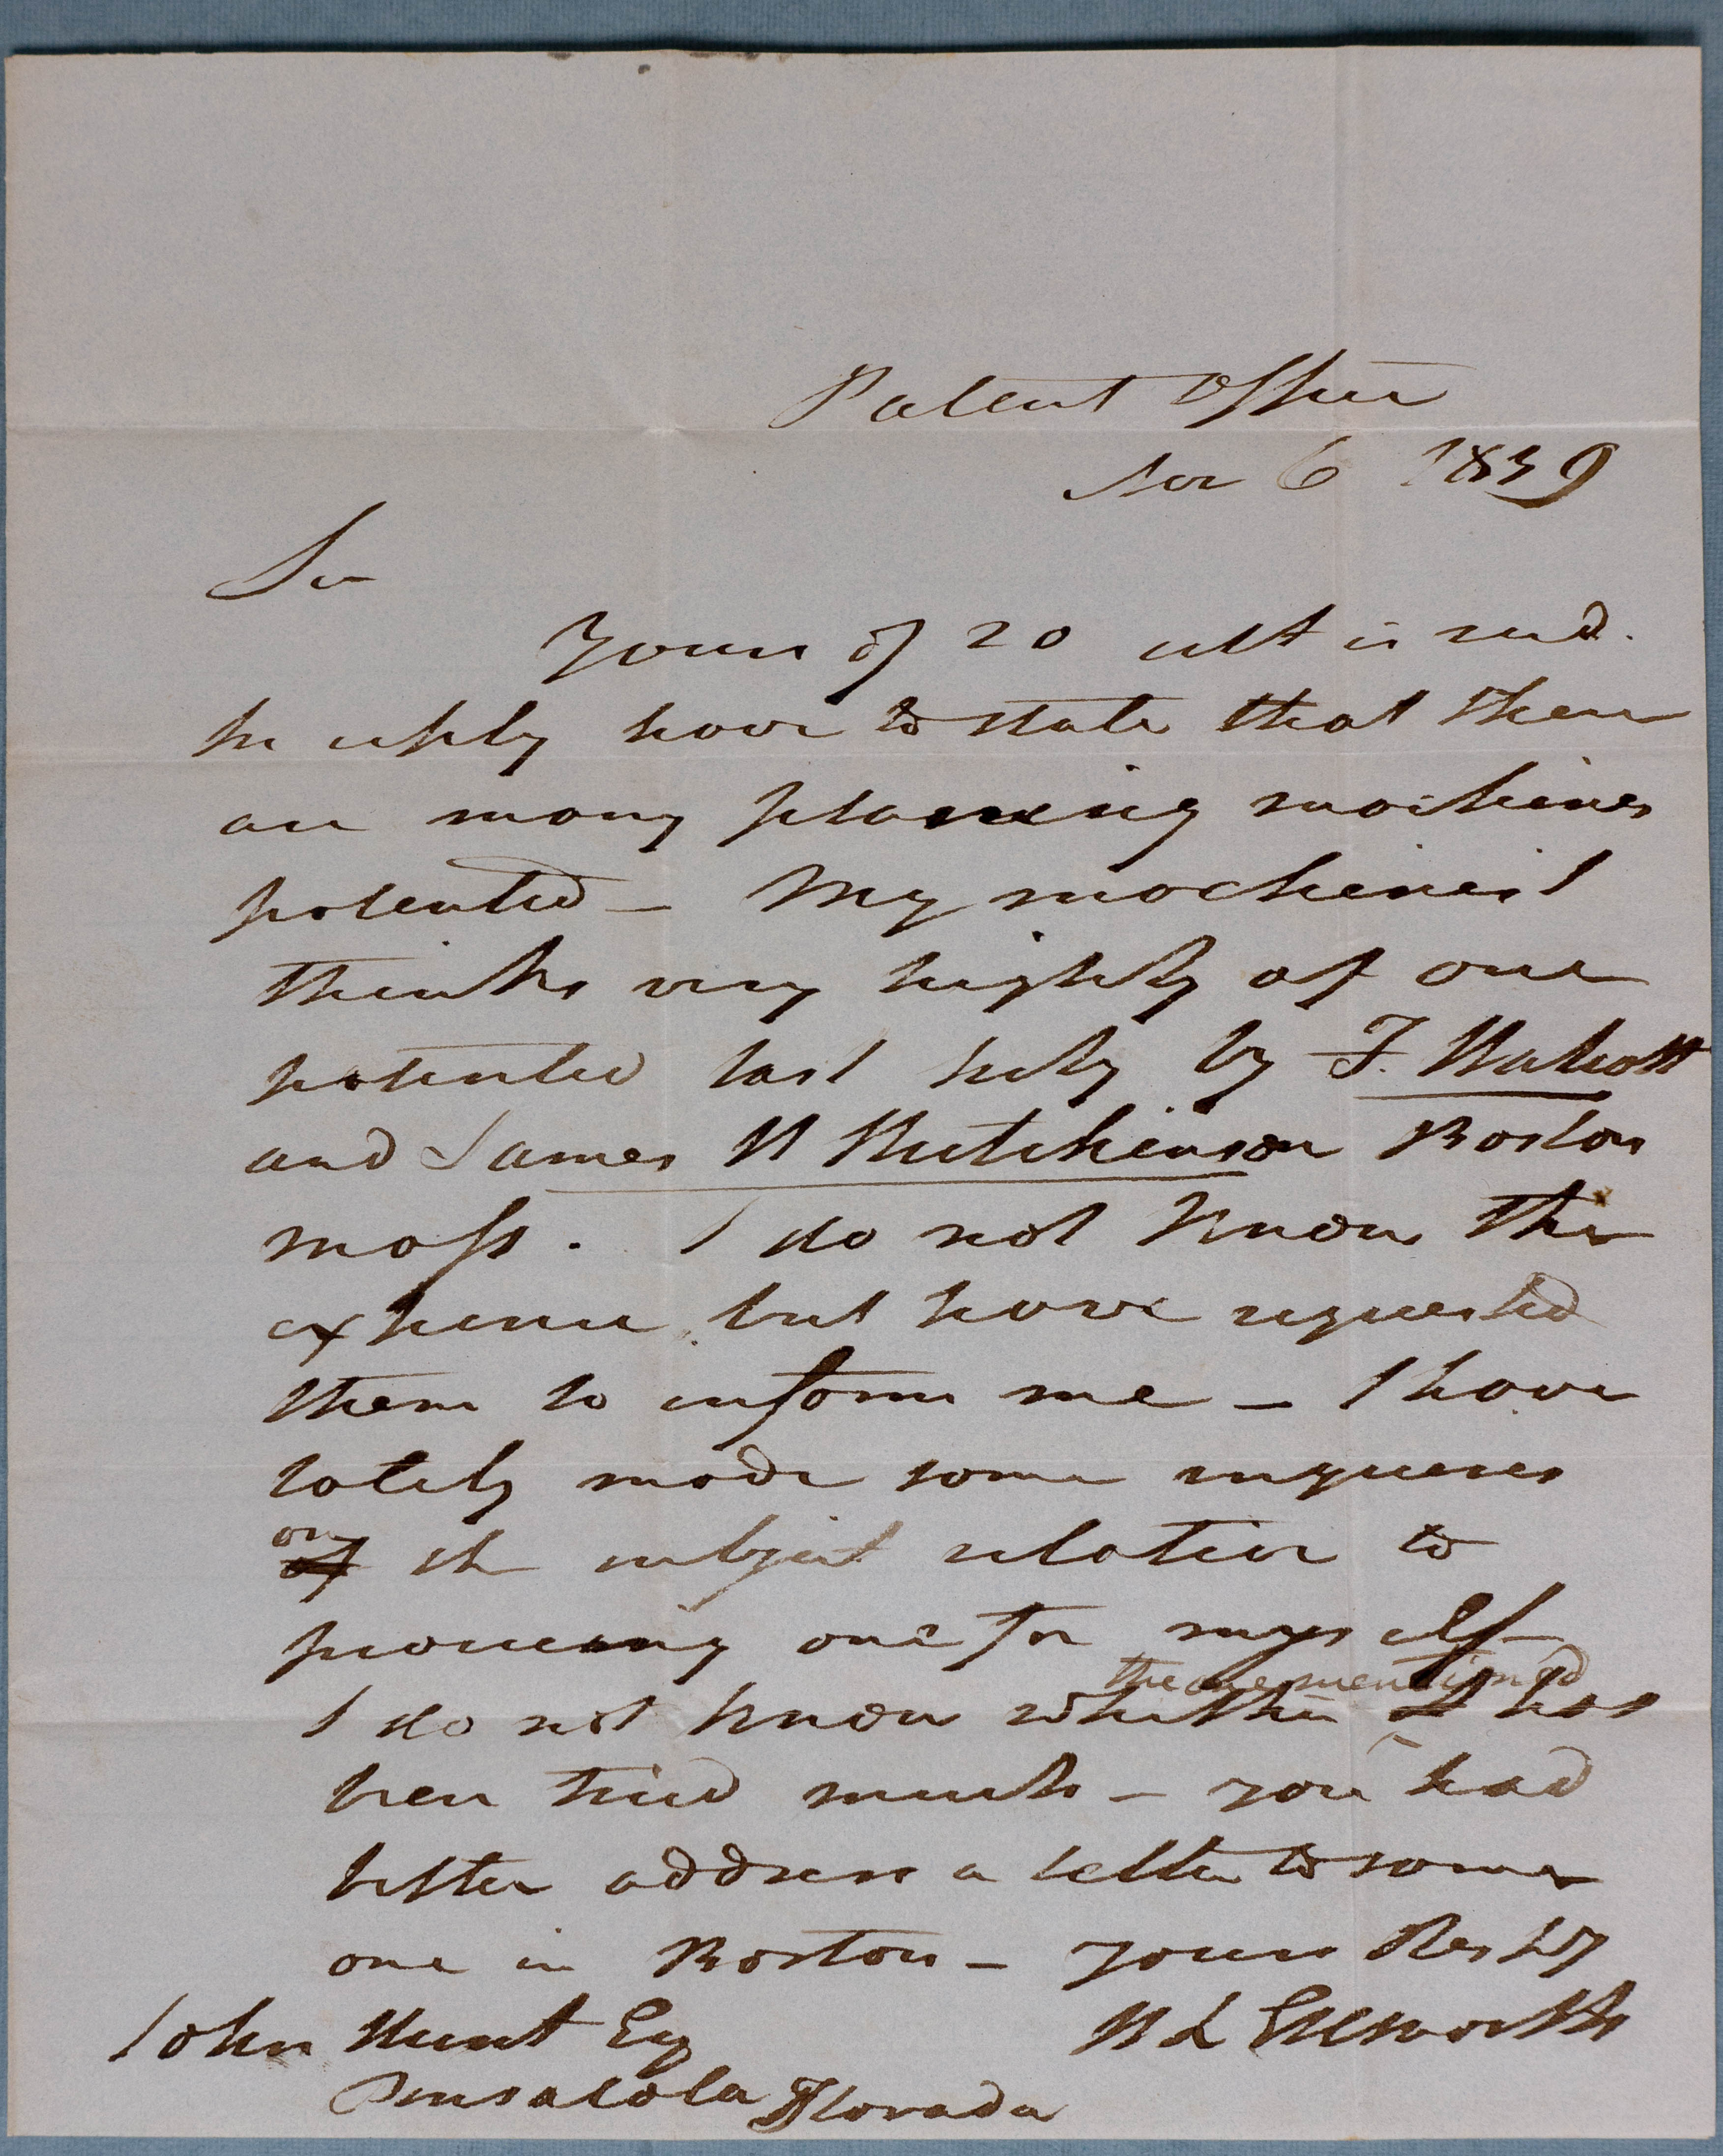 Patent Office
Nov 6 1839
Sir
Yours of 20 ult is recd.
In reply have to state that there
are many planing machines
patented – My machinist
thinks very highly of one
patented last July by F. Walcott
and James H Hutchinson Boston
Mass. I do not know the
expense but have requested
them to inform me – I have
lately made some inquires
on
of th subject relative to
procuring one for myself
the one mentioned
I do not know whether it has
been tried much – you had
better address a letter to some
one in Boston – Yours Resply
John Hunt Esq H L Ellsworth
Pensacola Florada